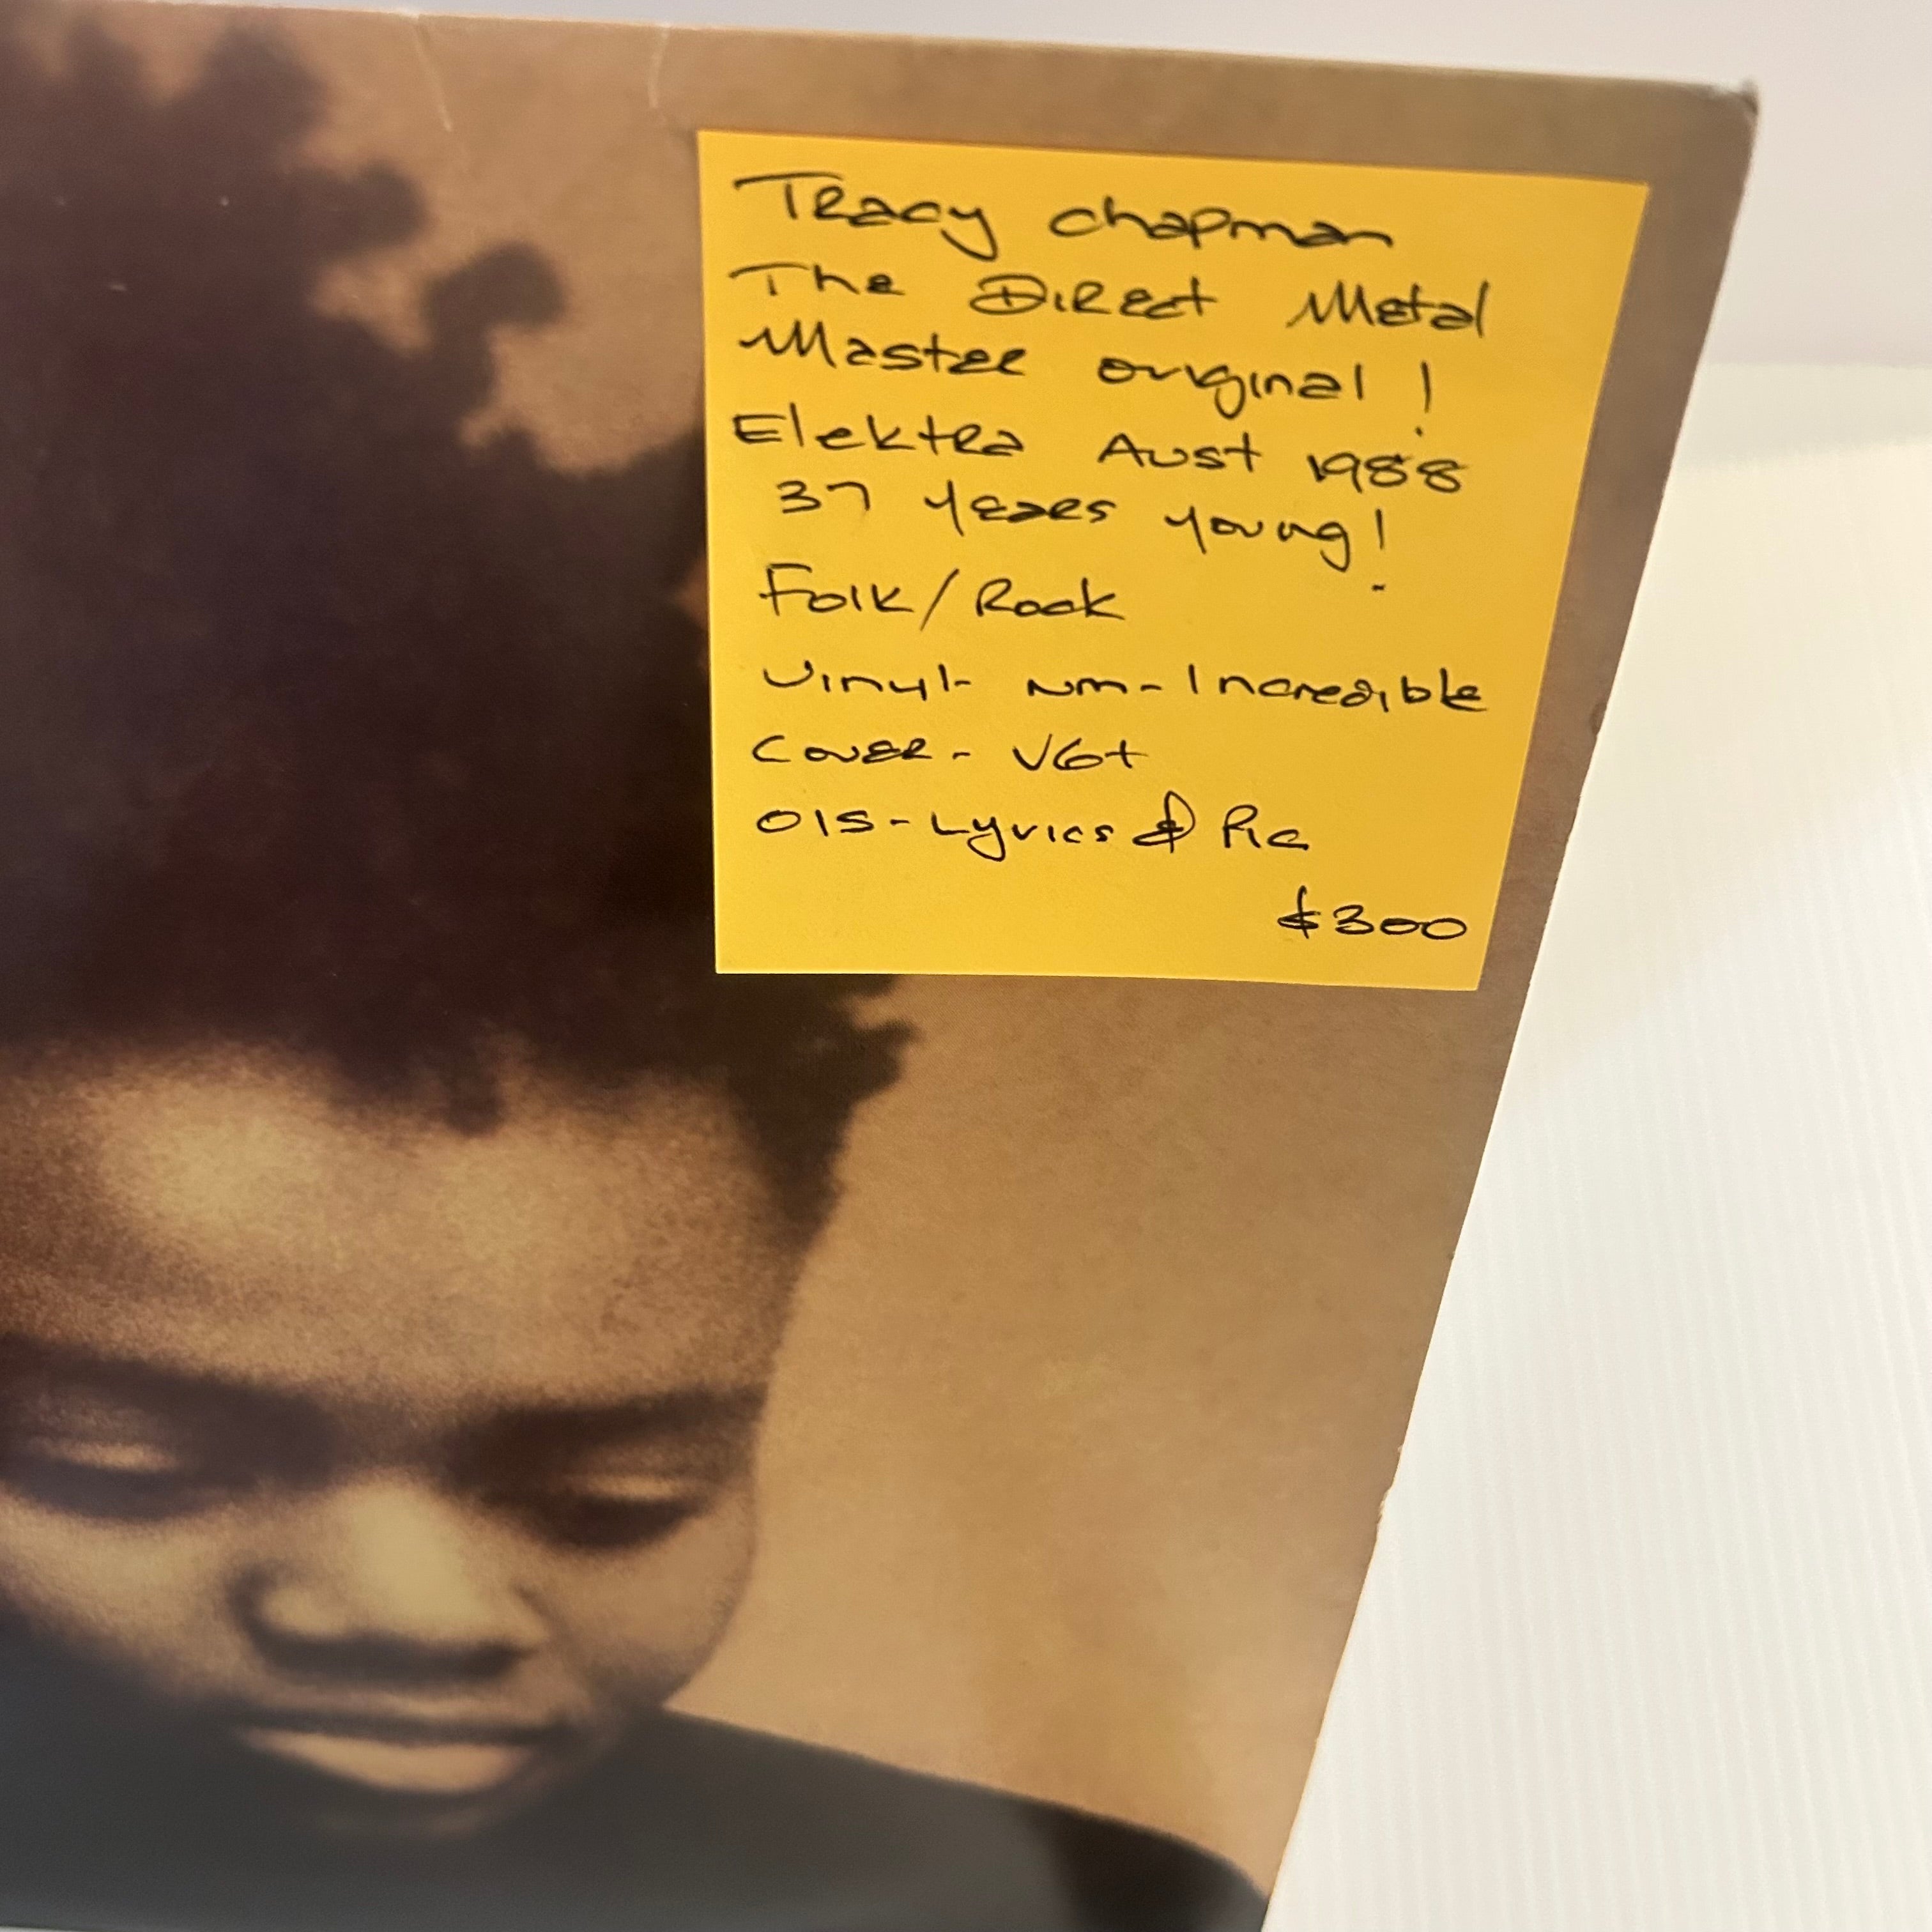 Tracy Chapman
The Direct Metal
Master original!
Elektra Aust 1988
37 years young!
Folk/Rock
Vinyl- NM-Incredible
Cover- VG+
OIS-Lyrics & Pic
$300